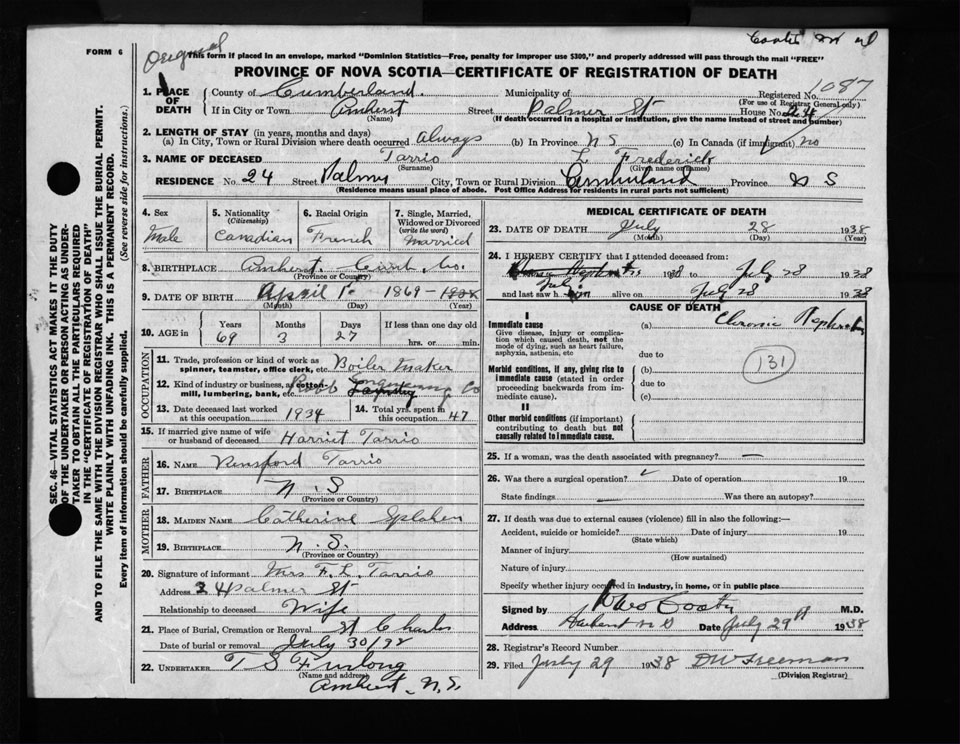 Original
FORM 6
This form if placed in an envelope, marked "Dominion Statistics—Free, penalty for improper use $309," and properly addressed will pass through the mail "FREE"
PROVINCE OF NOVA SCOTIA—CERTIFICATE OF REGISTRATION OF DEATH
1087
1. PLACE OF DEATH
County of Cumberland. Municipality of Registered No.
(For use of Registrar General only)
If in City or Town Amherst (Name) Street Palmer St House No. 24
(If death occurred in a hospital or institution, give the name instead of street and number)
2. LENGTH OF STAY (in years, months and days)
(a) In City, Town or Rural Division where death occurred always (b) In Province N S (c) In Canada (if immigrant) no
3. NAME OF DECEASED Tarrio (Surname) L Frederick (Given name or names)
RESIDENCE No. 24 Street Palmer City, Town or Rural Division Cumberland Province N S
(Residence means usual place of abode. Post Office Address for residents in rural parts not sufficient)
4. Sex Male
5. Nationality (Citizenship) Canadian
6. Racial Origin French
7. Single, Married, Widowed or Divorced (write the word) Married
8. BIRTHPLACE Amherst. Cumb. Co.
(Province or Country)
9. DATE OF BIRTH April 1 1869
(Month) (Day) (Year)
10. AGE in Years 69 Months 3 Days 27 If less than one day old hrs. or min.
OCCUPATION
11. Trade, profession or kind of work as spinner, teamster, office clerk, etc. Boiler Maker
12. Kind of industry or business, as cotton-mill, lumbering, bank, etc. Robb Engineering Co
13. Date deceased last worked at this occupation 1934
14. Total yrs. spent in this occupation 47
15. If married give name of wife or husband of deceased Harriet Tarrio
FATHER
16. NAME Tarrio
17. BIRTHPLACE N. S
(Province or Country)
MOTHER
18. MAIDEN NAME Catherine
19. BIRTHPLACE N. S.
(Province or Country)
20. Signature of informant Mrs F. L. Tarrio
Address 24 Palmer St
Relationship to deceased Wife
21. Place of Burial, Cremation or Removal St Charles
Date of burial or removal July 30/38
22. UNDERTAKER T S Furlong
(Name and address)
Amherst, N.S.
MEDICAL CERTIFICATE OF DEATH
23. DATE OF DEATH July 28 1938
(Month) (Day) (Year)
24. I HEREBY CERTIFY that I attended deceased from:
1938 to July 28 1938
and last saw him alive on July 28 1938
CAUSE OF DEATH
I
Immediate cause
Give disease, injury or complication which caused death, not the mode of dying, such as heart failure, asphyxia, asthenia, etc
(a) Chronic Nephritis
due to
131
Morbid conditions, if any, giving rise to immediate cause (stated in order proceeding backwards from immediate cause).
(b)
due to
(c)
II
Other morbid conditions (if important) contributing to death but not causally related to immediate cause.
25. If a woman, was the death associated with pregnancy? —
26. Was there a surgical operation? Date of operation 19
State findings — Was there an autopsy?
27. If death was due to external causes (violence) fill in also the following:—
Accident, suicide or homicide? Date of injury 19
(State which)
Manner of injury
(How sustained)
Nature of injury
Specify whether injury occurred in industry, in home, or in public place
Signed by M.D.
Address Amherst N S Date July 29 1938
28. Registrar's Record Number
29. Filed July 29 1938 D W Freeman
(Division Registrar)
SEC. 46—VITAL STATISTICS ACT MAKES IT THE DUTY
OF THE UNDERTAKER OR PERSON ACTING AS UNDERTAKER TO OBTAIN ALL THE PARTICULARS REQUIRED
IN THE "CERTIFICATE OF REGISTRATION OF DEATH"
AND TO FILE THE SAME WITH THE DIVISION REGISTRAR WHO SHALL ISSUE THE BURIAL PERMIT.
WRITE PLAINLY WITH UNFADING INK. THIS IS A PERMANENT RECORD.
Every item of information should be carefully supplied. (See reverse side for instructions.)